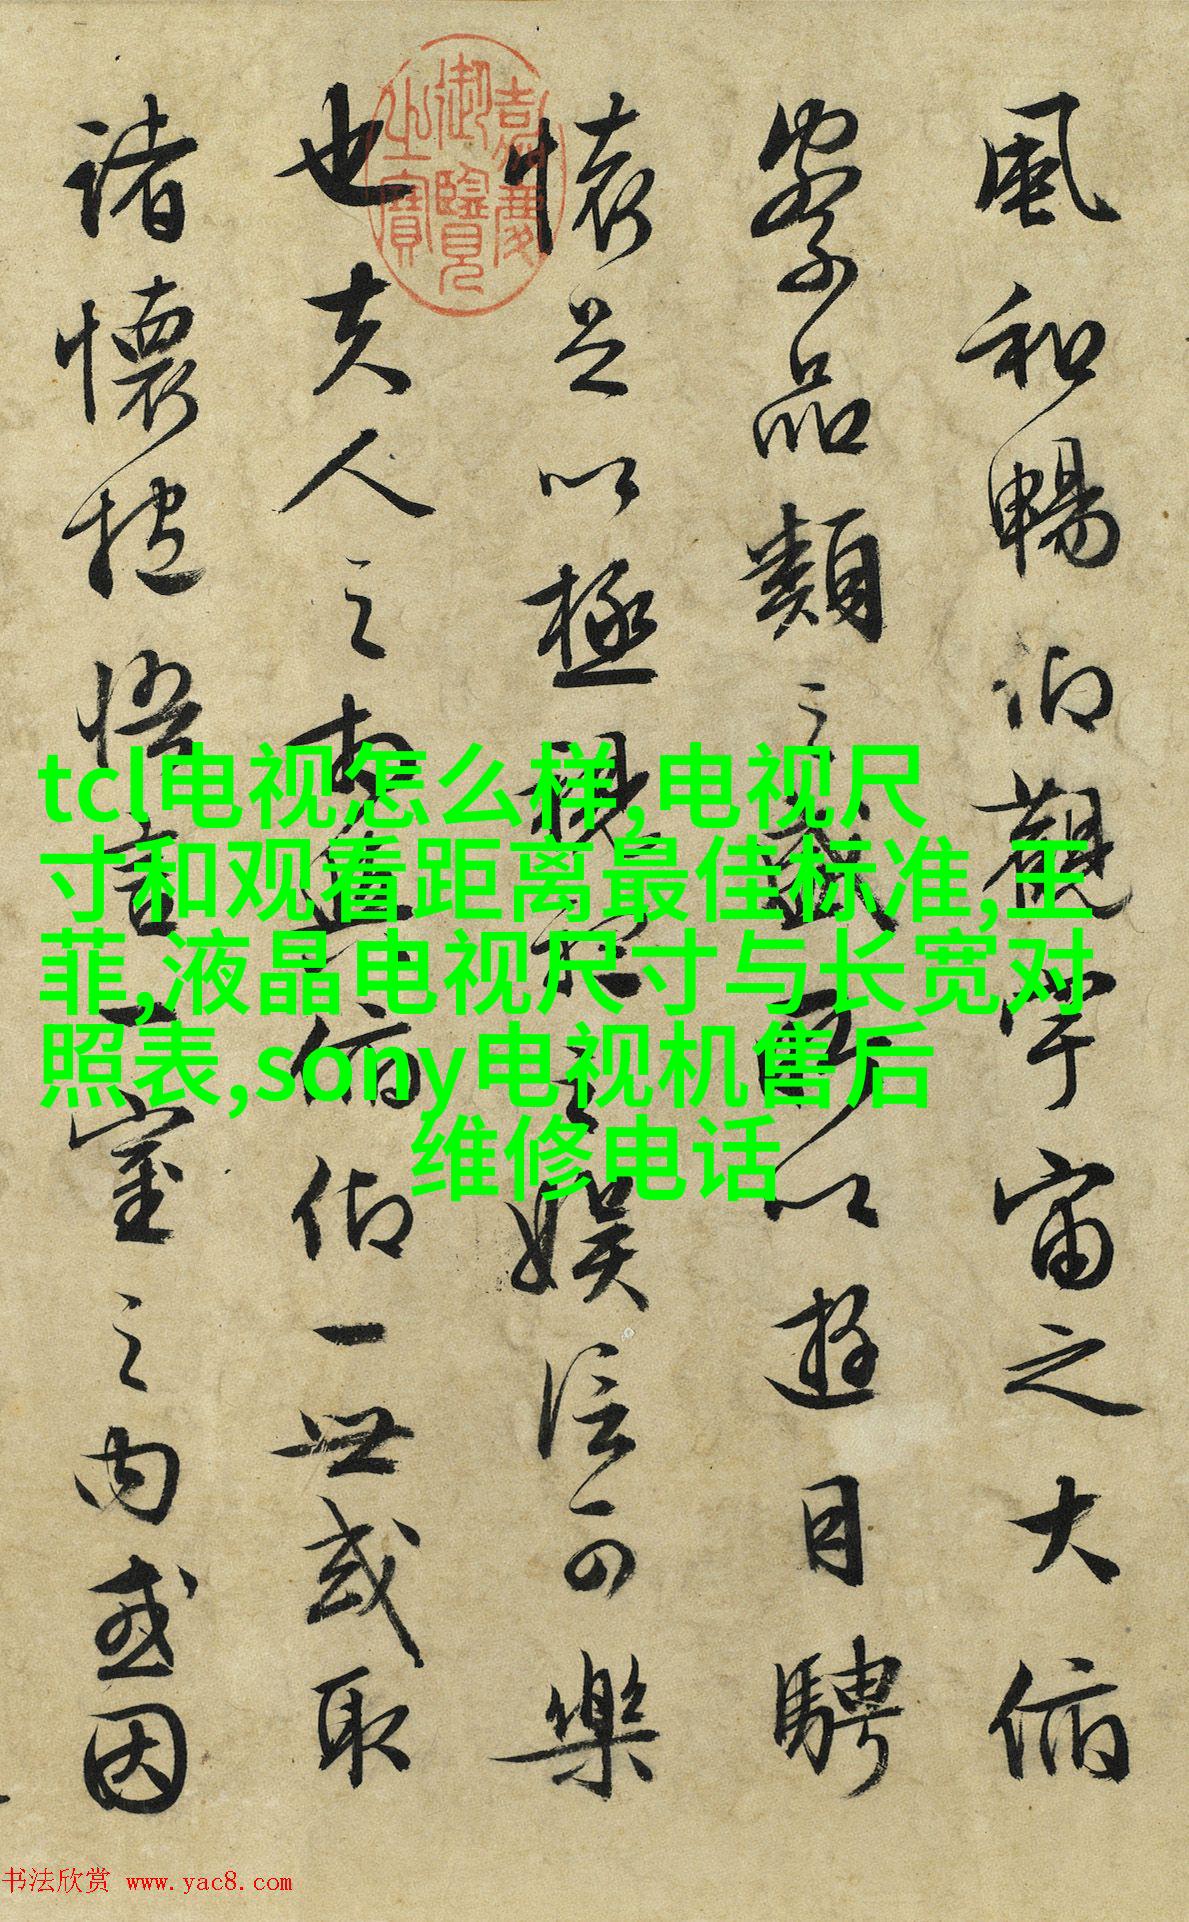 風和暢仰觀宇宙之大俯
察品類之盛所以遊目騁
懷足以極視聽之娛信可樂
也夫人之相與俯仰一世或取
諸懷抱悟言一室之內或因
嘉慶御覽之寶
tcl电视怎么样,电视尺
寸和观看距离最佳标准,王
菲,液晶电视尺寸与长宽对
照表,sony电视机售后
维修电话
书法欣赏 www.yac8.com